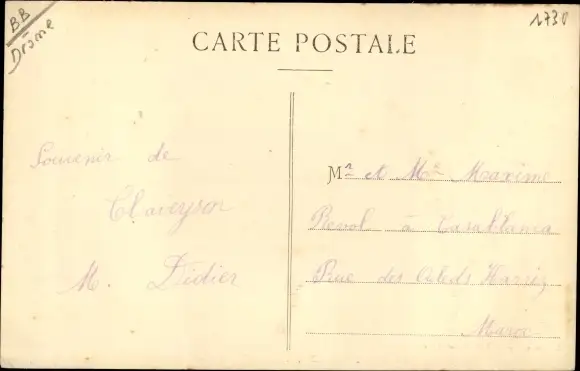 BB
Drôme
1730
CARTE POSTALE
Souvenir de
Claveyson
M. Didier
Mr et Mme Maxime
à Casablanca
Rue des Harriz
Maroc